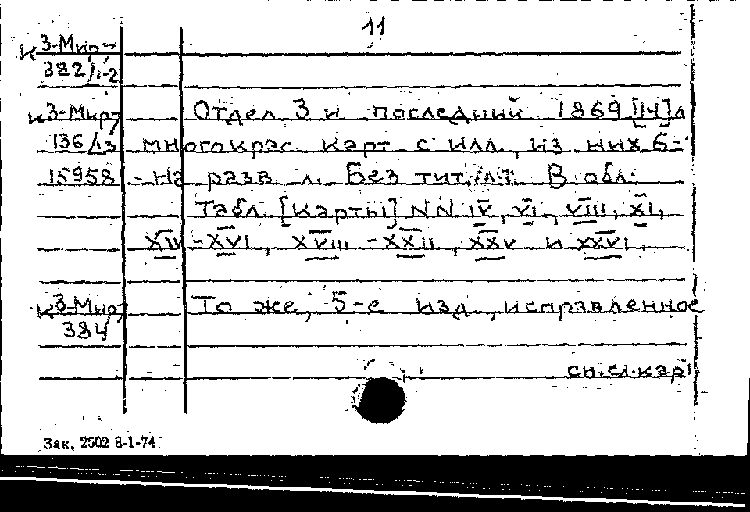 11
к 3-Мир
382/1-2
к 3-Мир Отдел 3 и последний 1869 [14] л
136/13 многокрас. карт с илл., из них 6-
15958 - на разв. л. Без тит. л. В обл.
Табл. [Карты] NN IV, VI, VIII, XI,
XIV - XVI, XVIII - XXII, XXV и XXVI.
к 3-Мир То же, 5-е изд., исправленное
384
см. сл. кар
Зак. 2502 8-1-74